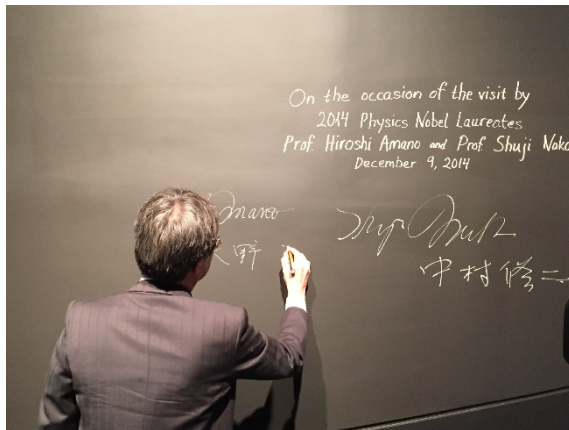 On the occasion of the visit by
2014 Physics Nobel Laureates
Prof. Hiroshi Amano and Prof. Shuji Naka
December 9, 2014
Amano Shuji
野 中村修二